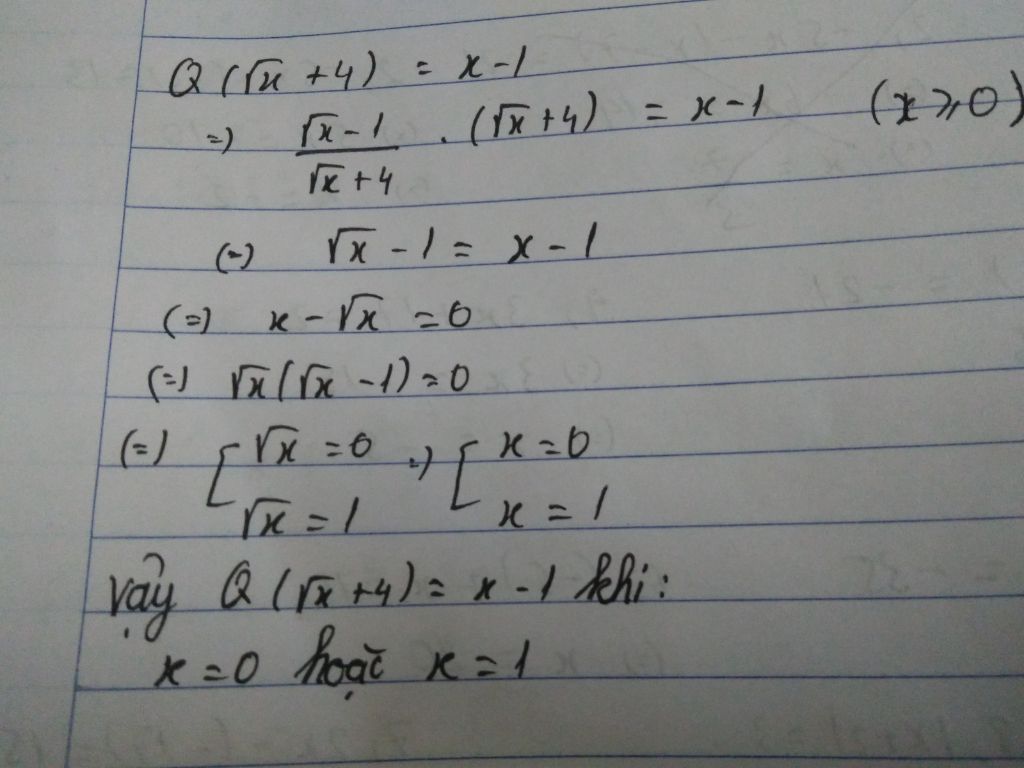 Q(√x + 4) = x - 1
=) (√x - 1)/(√x + 4) . (√x + 4) = x - 1 (x ⩾ 0)
(=) √x - 1 = x - 1
(=) x - √x = 0
(=) √x(√x - 1) = 0
(=) [ √x = 0 =) [ x = 0
√x = 1 x = 1
Vậy Q(√x + 4) = x - 1 khi:
x = 0 hoặc x = 1